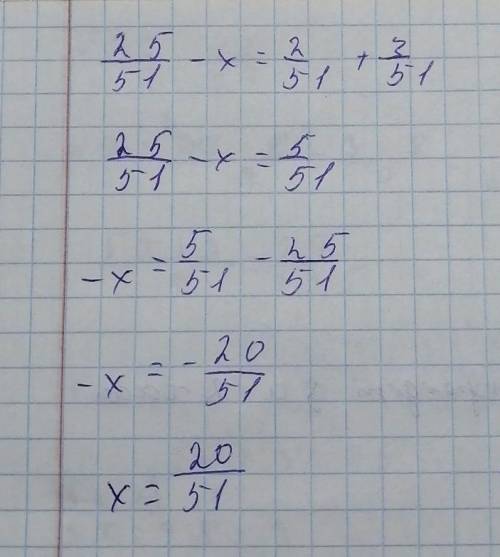 25/51 - x = 2/51 + 3/51
25/51 - x = 5/51
-x = 5/51 - 25/51
-x = -20/51
x = 20/51